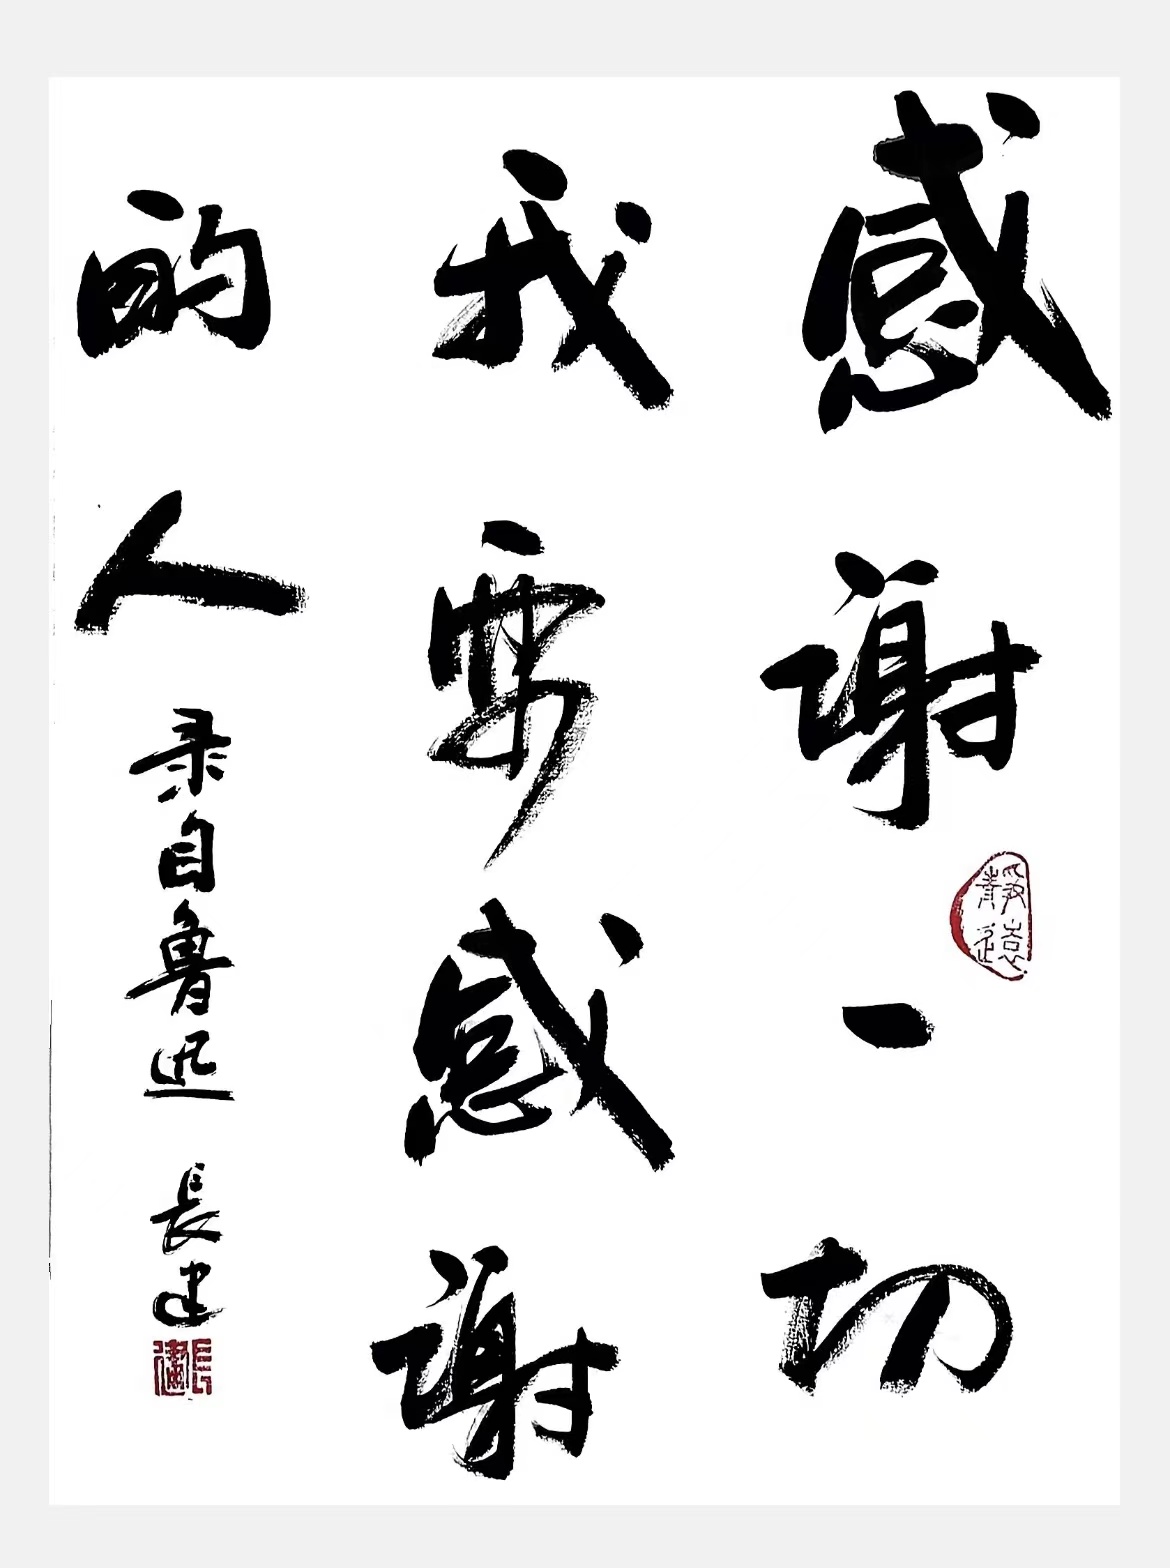 感謝一切
我要感謝
的人
录自鲁迅
長建